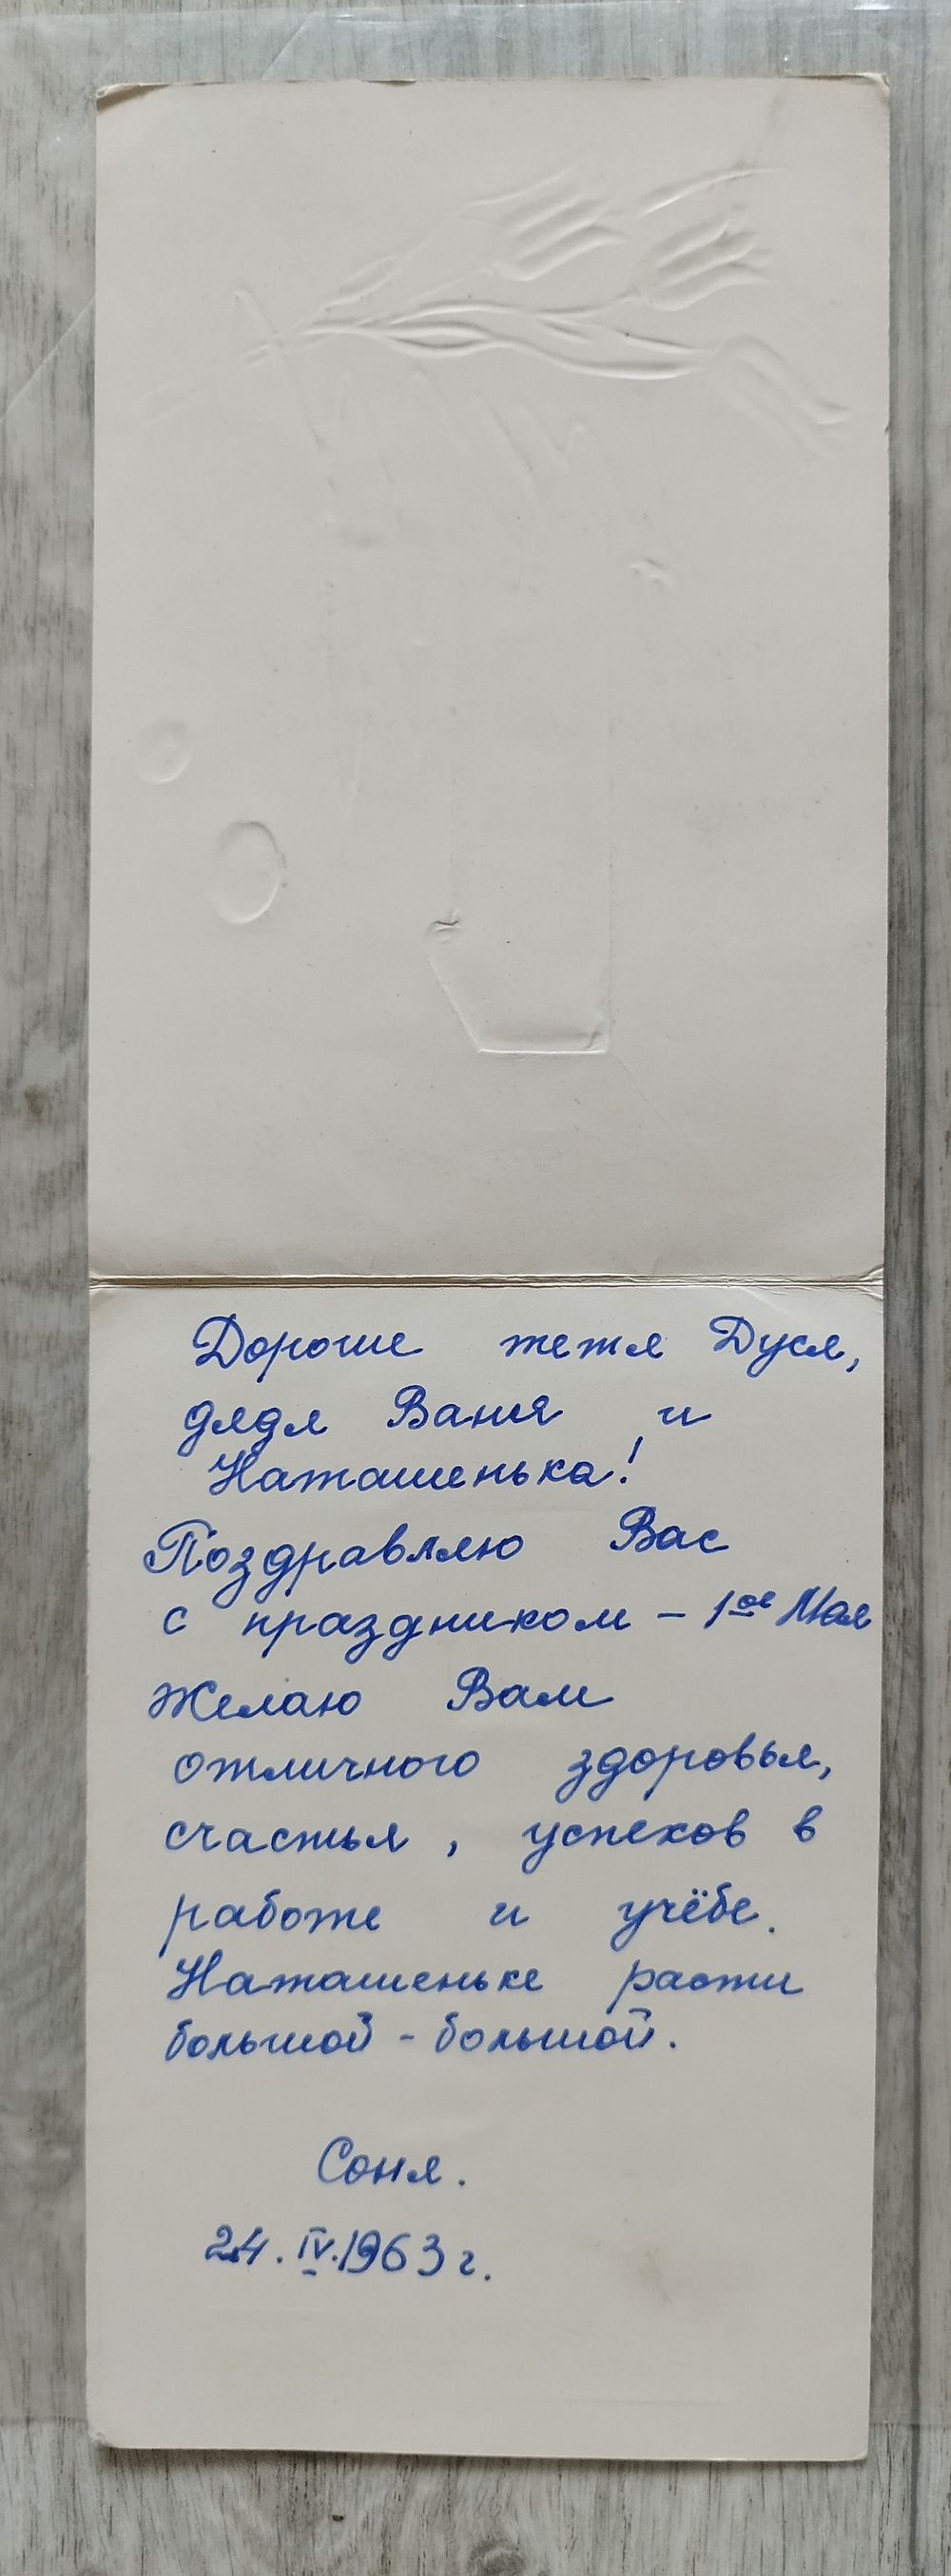 Дорогие тетя Дуся,
дядя Ваня и
Наташенька!
Поздравляю Вас
с праздником - 1ое Мая
Желаю Вам
отличного здоровья,
счастья, успехов в
работе и учёбе.
Наташеньке расти
большой - большой.
Соня.
24.IV.1963 г.